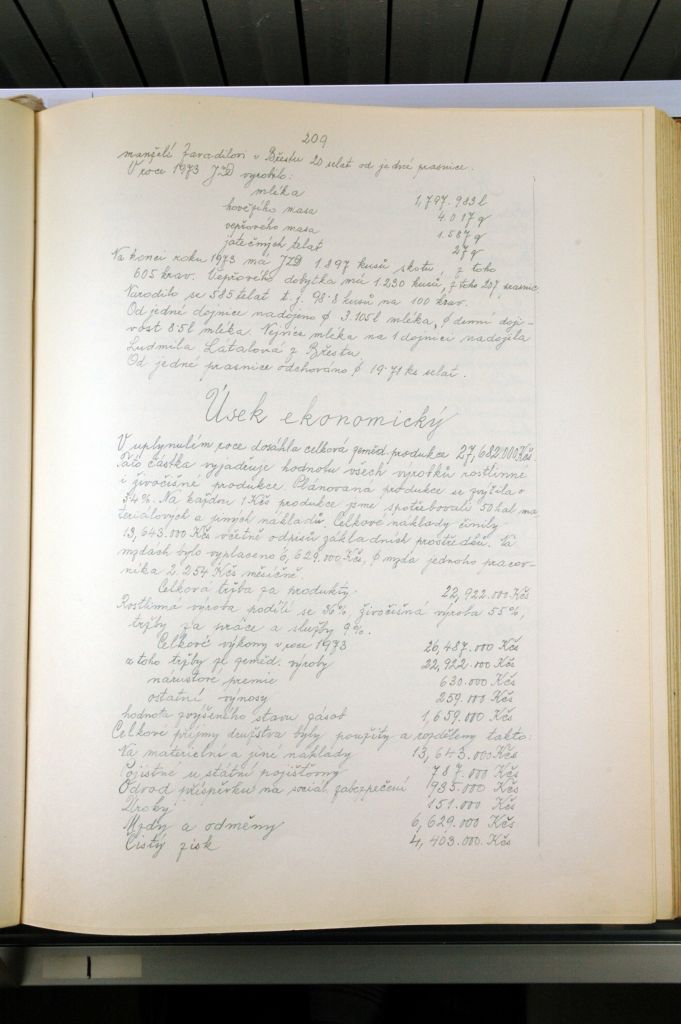 209
manželé Zavadilovi v Břestu 20 selat od jedné prasnice.
V roce 1973 JZD vyrobilo:
mléka 1,797.983 l
hovězího masa 4.017 q
vepřového masa 1.587 q
jatečných telat 27 q
Na konci roku 1973 má JZD 1.897 kusů skotu, z toho
605 krav. Vepřového dobytka má 1.230 kusů, z toho 207 prasnic
Narodilo se 585 telat t.j. 98.8 kusů na 100 krav.
Od jedné dojnice nadojeno ∅ 3.105 l mléka, ∅ denní doji-
vost 8.5 l mléka. Nejvíce mléka na 1 dojnici nadojila
Ludmila Látalová z Břestu.
Od jedné prasnice odchováno ∅ 19.71 ks selat.
Úsek ekonomický
V uplynulém roce dosáhla celková zeměd. produkce 27,682.000 Kčs.
Tato částka vyjadřuje hodnotu všech výrobků rostlinné
i živočišné produkce. Plánovaná produkce se zvýšila o
3.4 %. Na každou 1 Kčs produkce jsme spotřebovali 50 hal ma
teriálových a jiných nákladů. Celkové náklady činily
13,643.000 Kčs včetně odpisů základních prostředků. Na
mzdách bylo vyplaceno 6,629.000 Kčs, ∅ mzda jednoho pracov-
níka 2.254 Kčs měsíčně.
Celková tržba za produkty 22,922.000 Kčs
Rostlinná výroba podílí se 36 %, živočišná výroba 55 %,
tržby za práce a služby 9 %.
Celkové výkony v roce 1973 26,487.000 Kčs
z toho tržby ze zeměd. výroby 22,922.000 Kčs
nárůstové premie 630.000 Kčs
ostatní výnosy 259.000 Kčs
hodnota zvýšeného stavu zásob 1,659.000 Kčs
Celkové příjmy družstva byly použity a rozděleny takto:
Na materielní a jiné náklady 13,643.000 Kčs
Pojistné u státní pojišťovny 787.000 Kčs
Odvod příspěvku na social. zabezpečení 935.000 Kčs
Úroky 151.000 Kčs
Mzdy a odměny 6,629.000 Kčs
Čistý zisk 4,403.000 Kčs